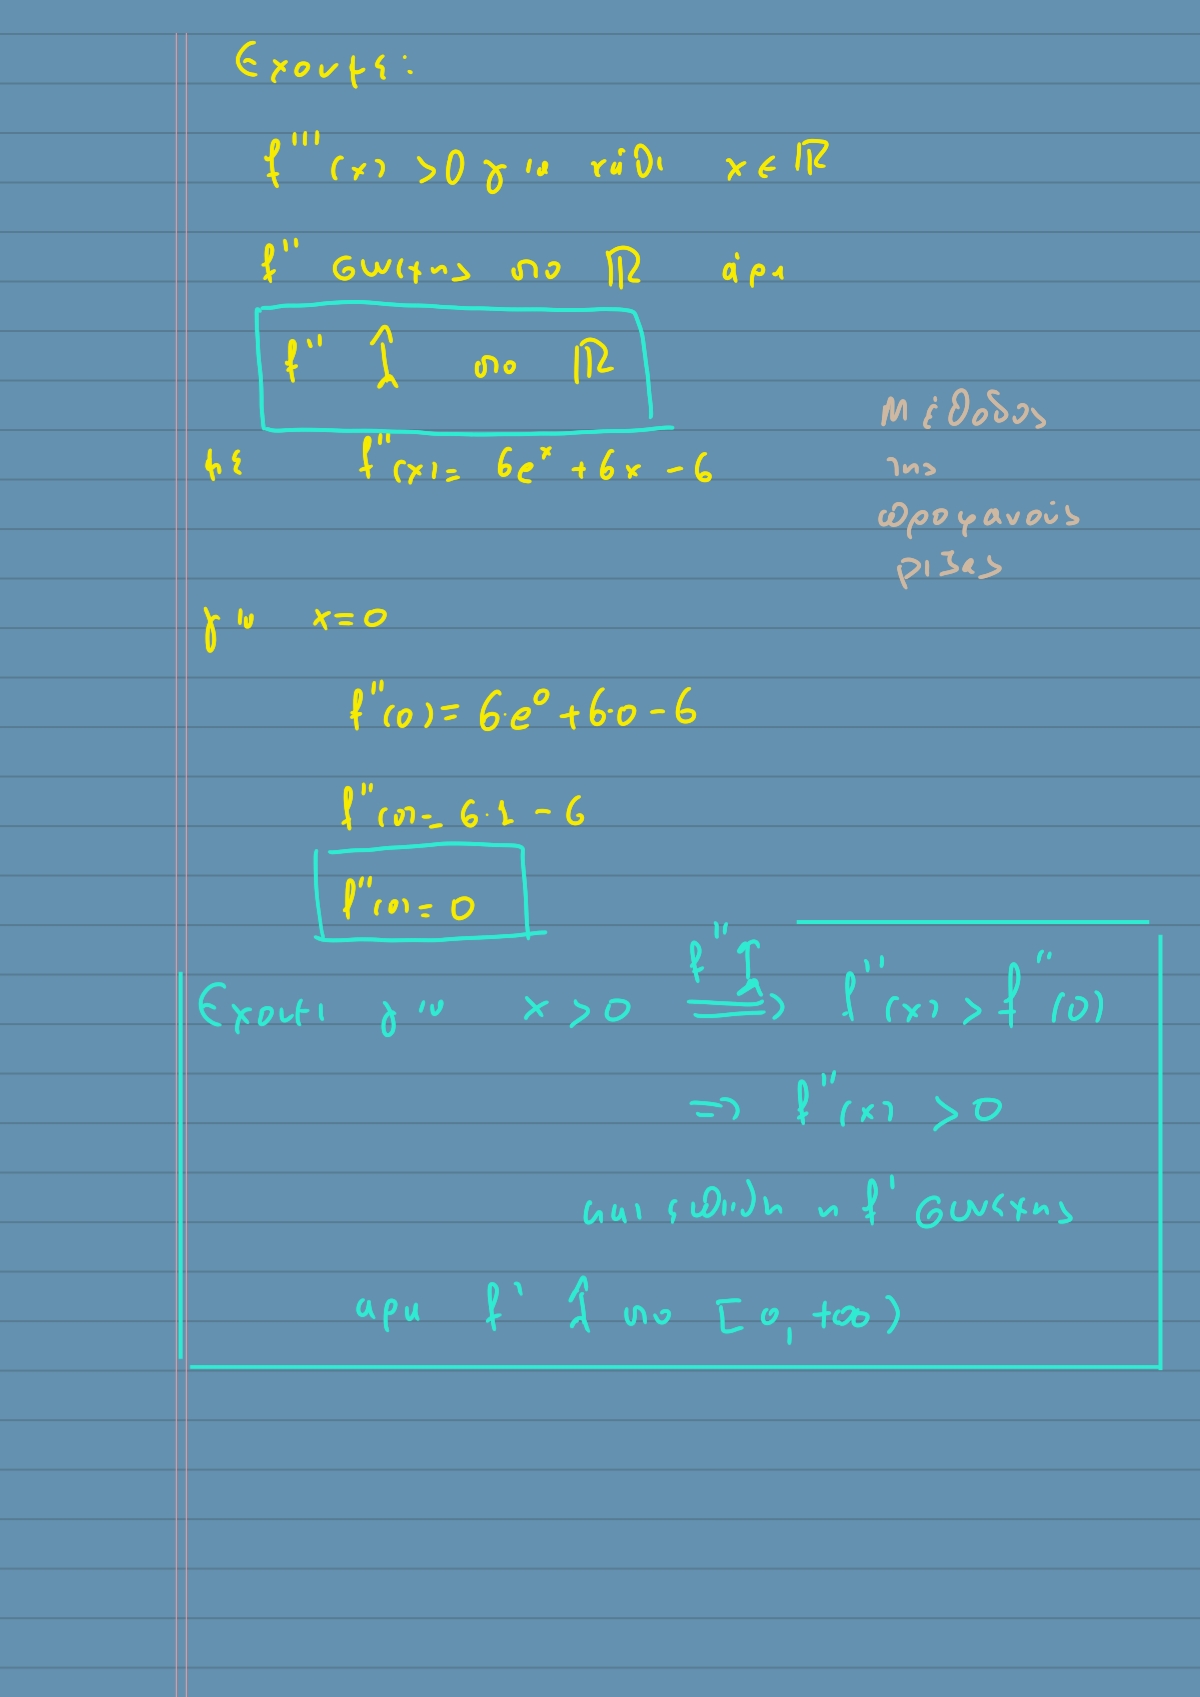 Εχουμε:
f'''(x) > 0 για κάθε x ∈ ℝ
f'' συνεχης στο ℝ άρα
f'' ↑ στο ℝ
με f''(x) = 6e^x + 6x - 6
Μέθοδος
της
προφανούς
ριζας
για x = 0
f''(0) = 6·e^0 + 6·0 - 6
f''(0) = 6·1 - 6
f''(0) = 0
f'' ↑
Εχουμε για x > 0 ⟹ f''(x) > f''(0)
⟹ f''(x) > 0
και επειδη η f' συνεχης
αρα f' ↑ στο [0, +∞)